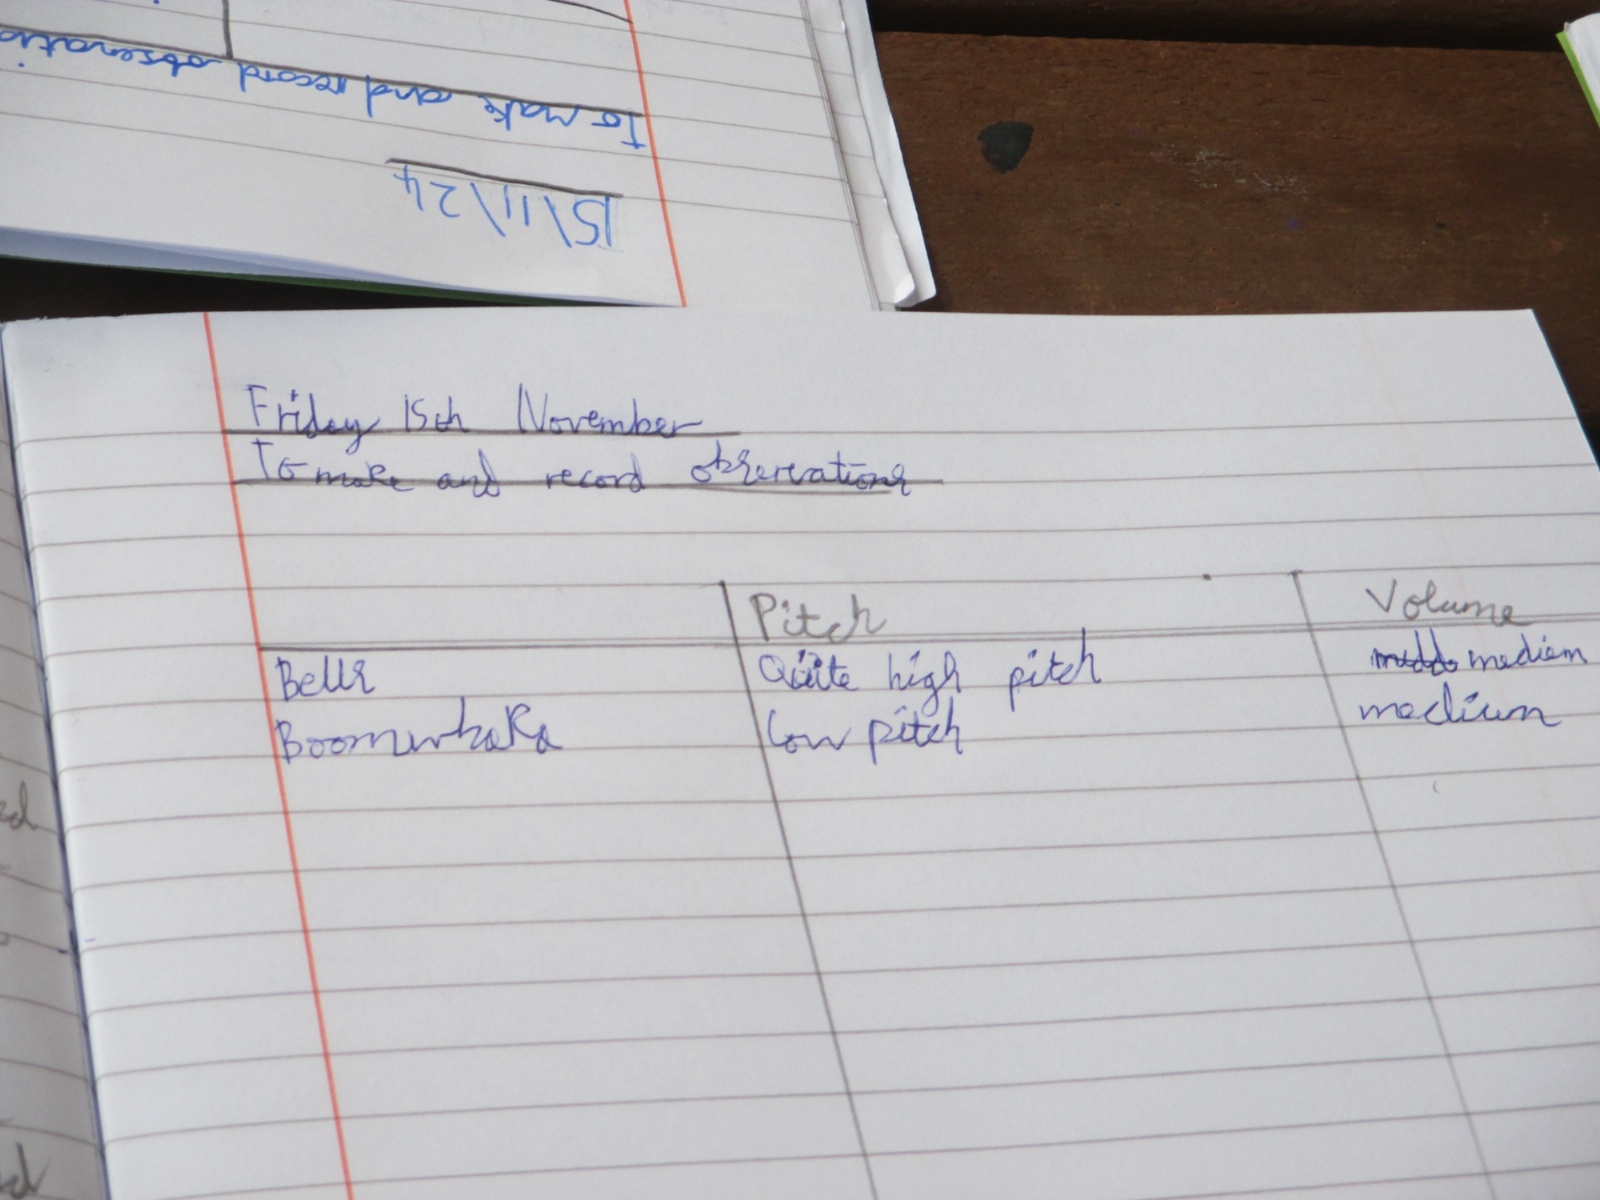 15/11/24
To make and record
Friday 15th November
To make and record observations
Pitch Volume
Bells Quite high pitch medium
Boomwhaka low pitch medium